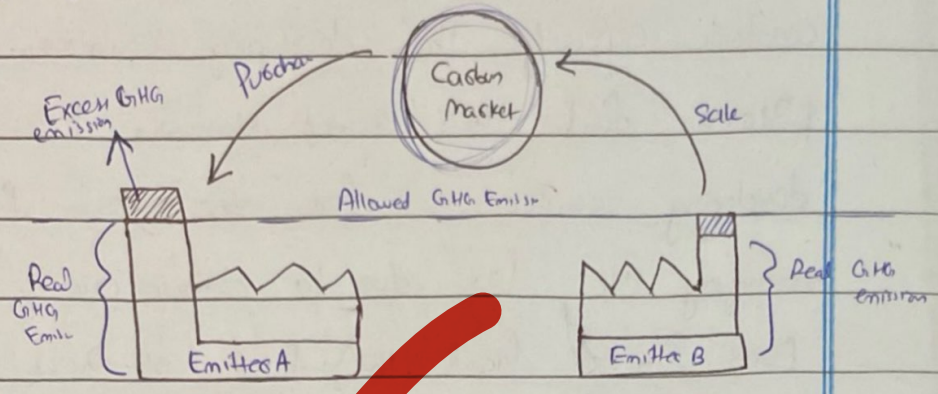 Carbon
Market
Purcha
Sale
Excess GHG
emission
Allowed GHG Emissn
Real
GHG
Emiss
Real GHG
emission
Emitter A
Emitter B